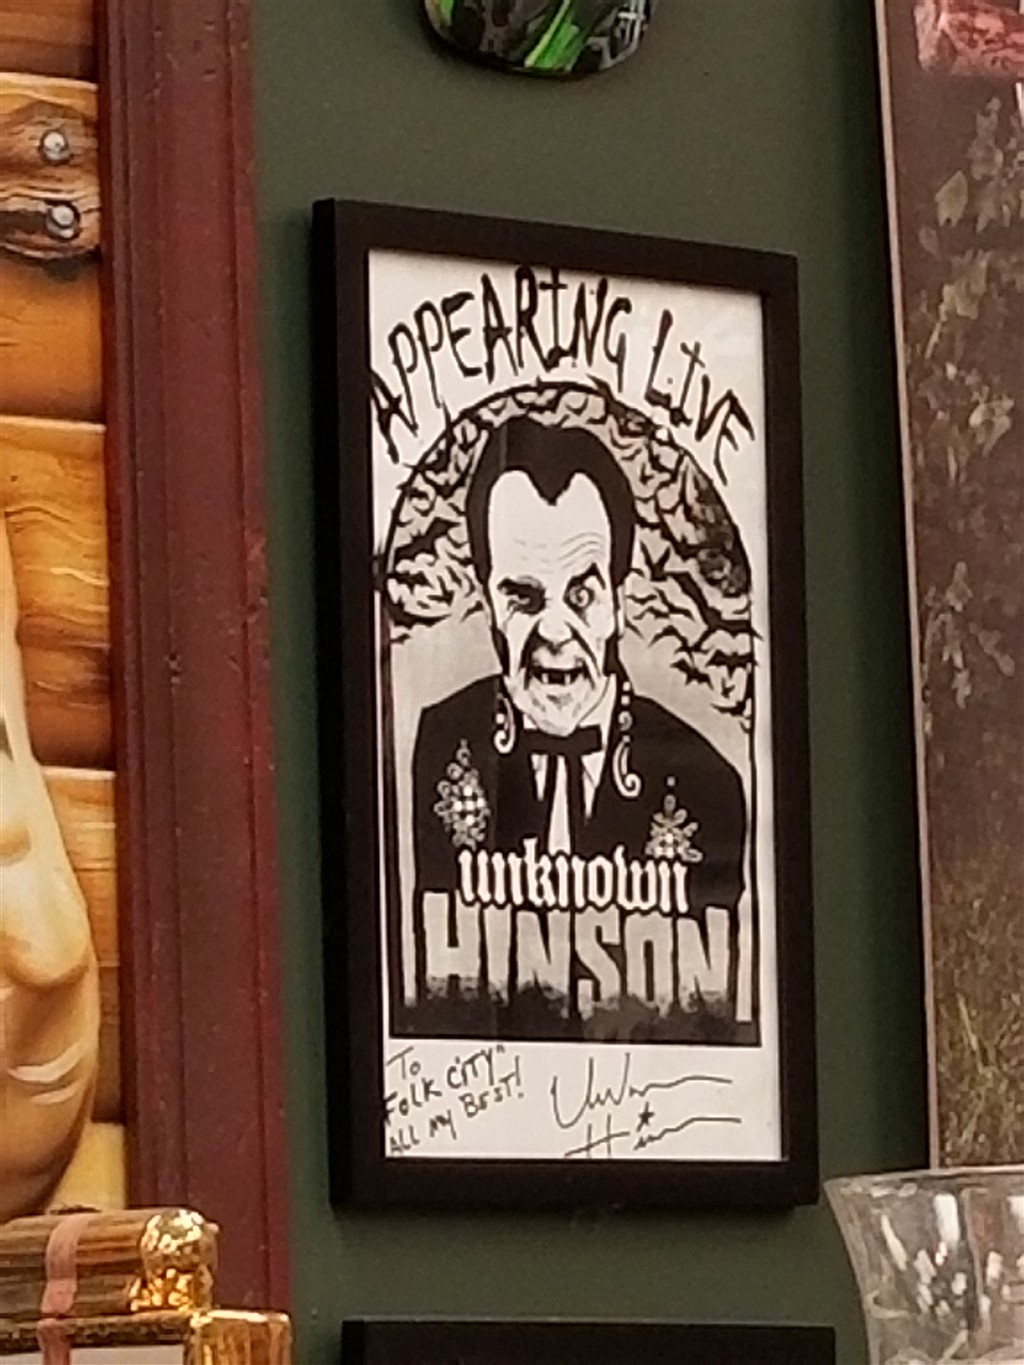 APPEARING LIVE
unknown
HINSON
To
FOLK CITY"
ALL MY BEST!
Unknown
Hinson